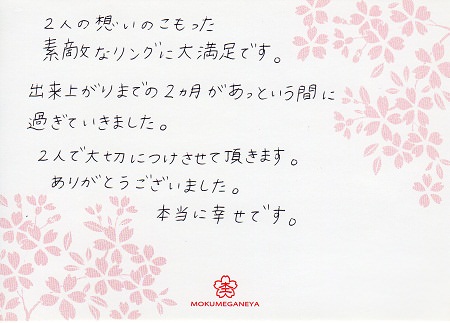 2人の想いのこもった
素敵なリングに大満足です。
出来上がりまでの2ヵ月があっという間に
過ぎていきました。
2人で大切につけさせて頂きます。
ありがとうございました。
本当に幸せです。
MOKUMEGANEYA